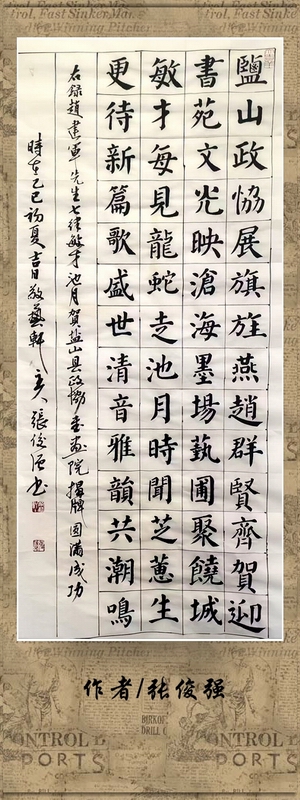 trol, Fast Sinker
Winning Pitcher
鹽山政恊展旗旌燕趙群賢齊賀迎
書苑文光映滄海墨場藝圃聚饒城
敏才每見龍蛇走池月時聞芝蕙生
更待新篇歌盛世清音雅韻共潮鳴
右録趙建軍先生七律敏才池月賀盐山县政協書画院揭牌圆满成功
時在乙巳初夏吉日敬藝軒主人張俊强书
Winning Pitcher
作者/张俊强
ONTROL
PORTS